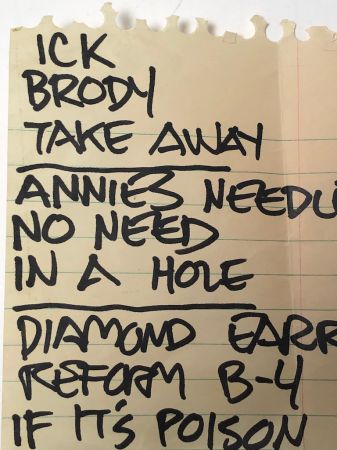 ICK
BRODY
TAKE AWAY
ANNIES NEEDL
NO NEED
IN A HOLE
DIAMOND EARR
REFORM B-4
IF IT'S POISON